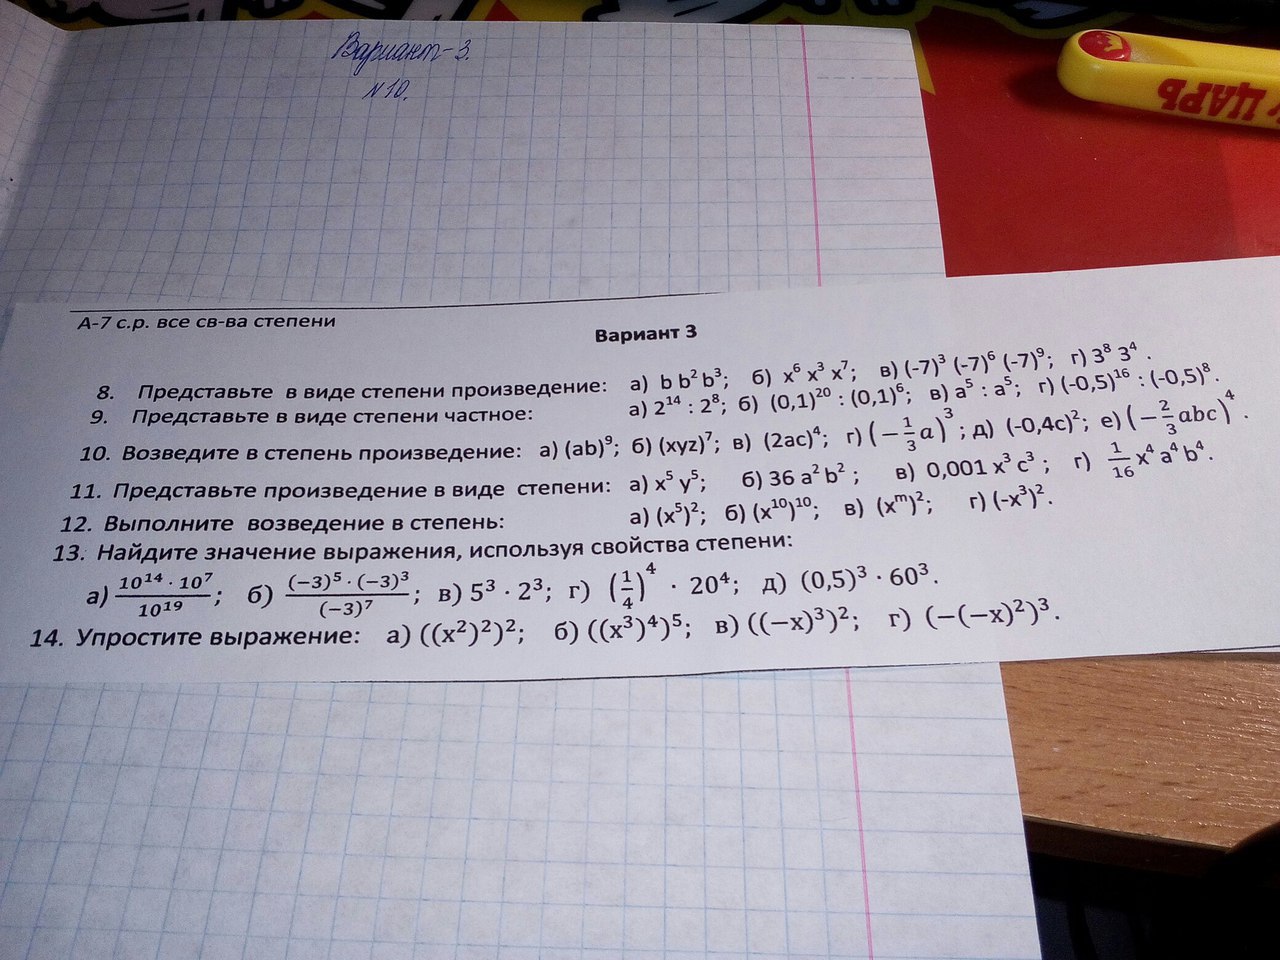 Вариант-3.
№10.
ЦАРЬ
А-7 с.р. все св-ва степени
Вариант 3
8. Представьте в виде степени произведение: а) b b² b³; б) x⁶ x³ x⁷; в) (-7)³ (-7)⁶ (-7)⁹; г) 3⁸ 3⁴ .
9. Представьте в виде степени частное: а) 2¹⁴ : 2⁸; б) (0,1)²⁰ : (0,1)⁶; в) a⁵ : a⁵; г) (-0,5)¹⁶ : (-0,5)⁸.
10. Возведите в степень произведение: а) (ab)⁹; б) (xyz)⁷; в) (2ac)⁴; г) (−1/3 a)³ ; д) (-0,4c)²; е) (−2/3 abc)⁴ .
11. Представьте произведение в виде степени: а) x⁵ y⁵; б) 36 a² b² ; в) 0,001 x³ c³ ; г) 1/16 x⁴ a⁴ b⁴.
12. Выполните возведение в степень: а) (x⁵)²; б) (x¹⁰)¹⁰; в) (xᵐ)²; г) (-x³)².
13. Найдите значение выражения, используя свойства степени:
а) 10¹⁴ · 10⁷/10¹⁹; б) (−3)⁵ · (−3)³/(−3)⁷; в) 5³ · 2³; г) (1/4)⁴ · 20⁴; д) (0,5)³ · 60³.
14. Упростите выражение: а) ((x²)²)²; б) ((x³)⁴)⁵; в) ((−x)³)²; г) (−(−x)²)³.